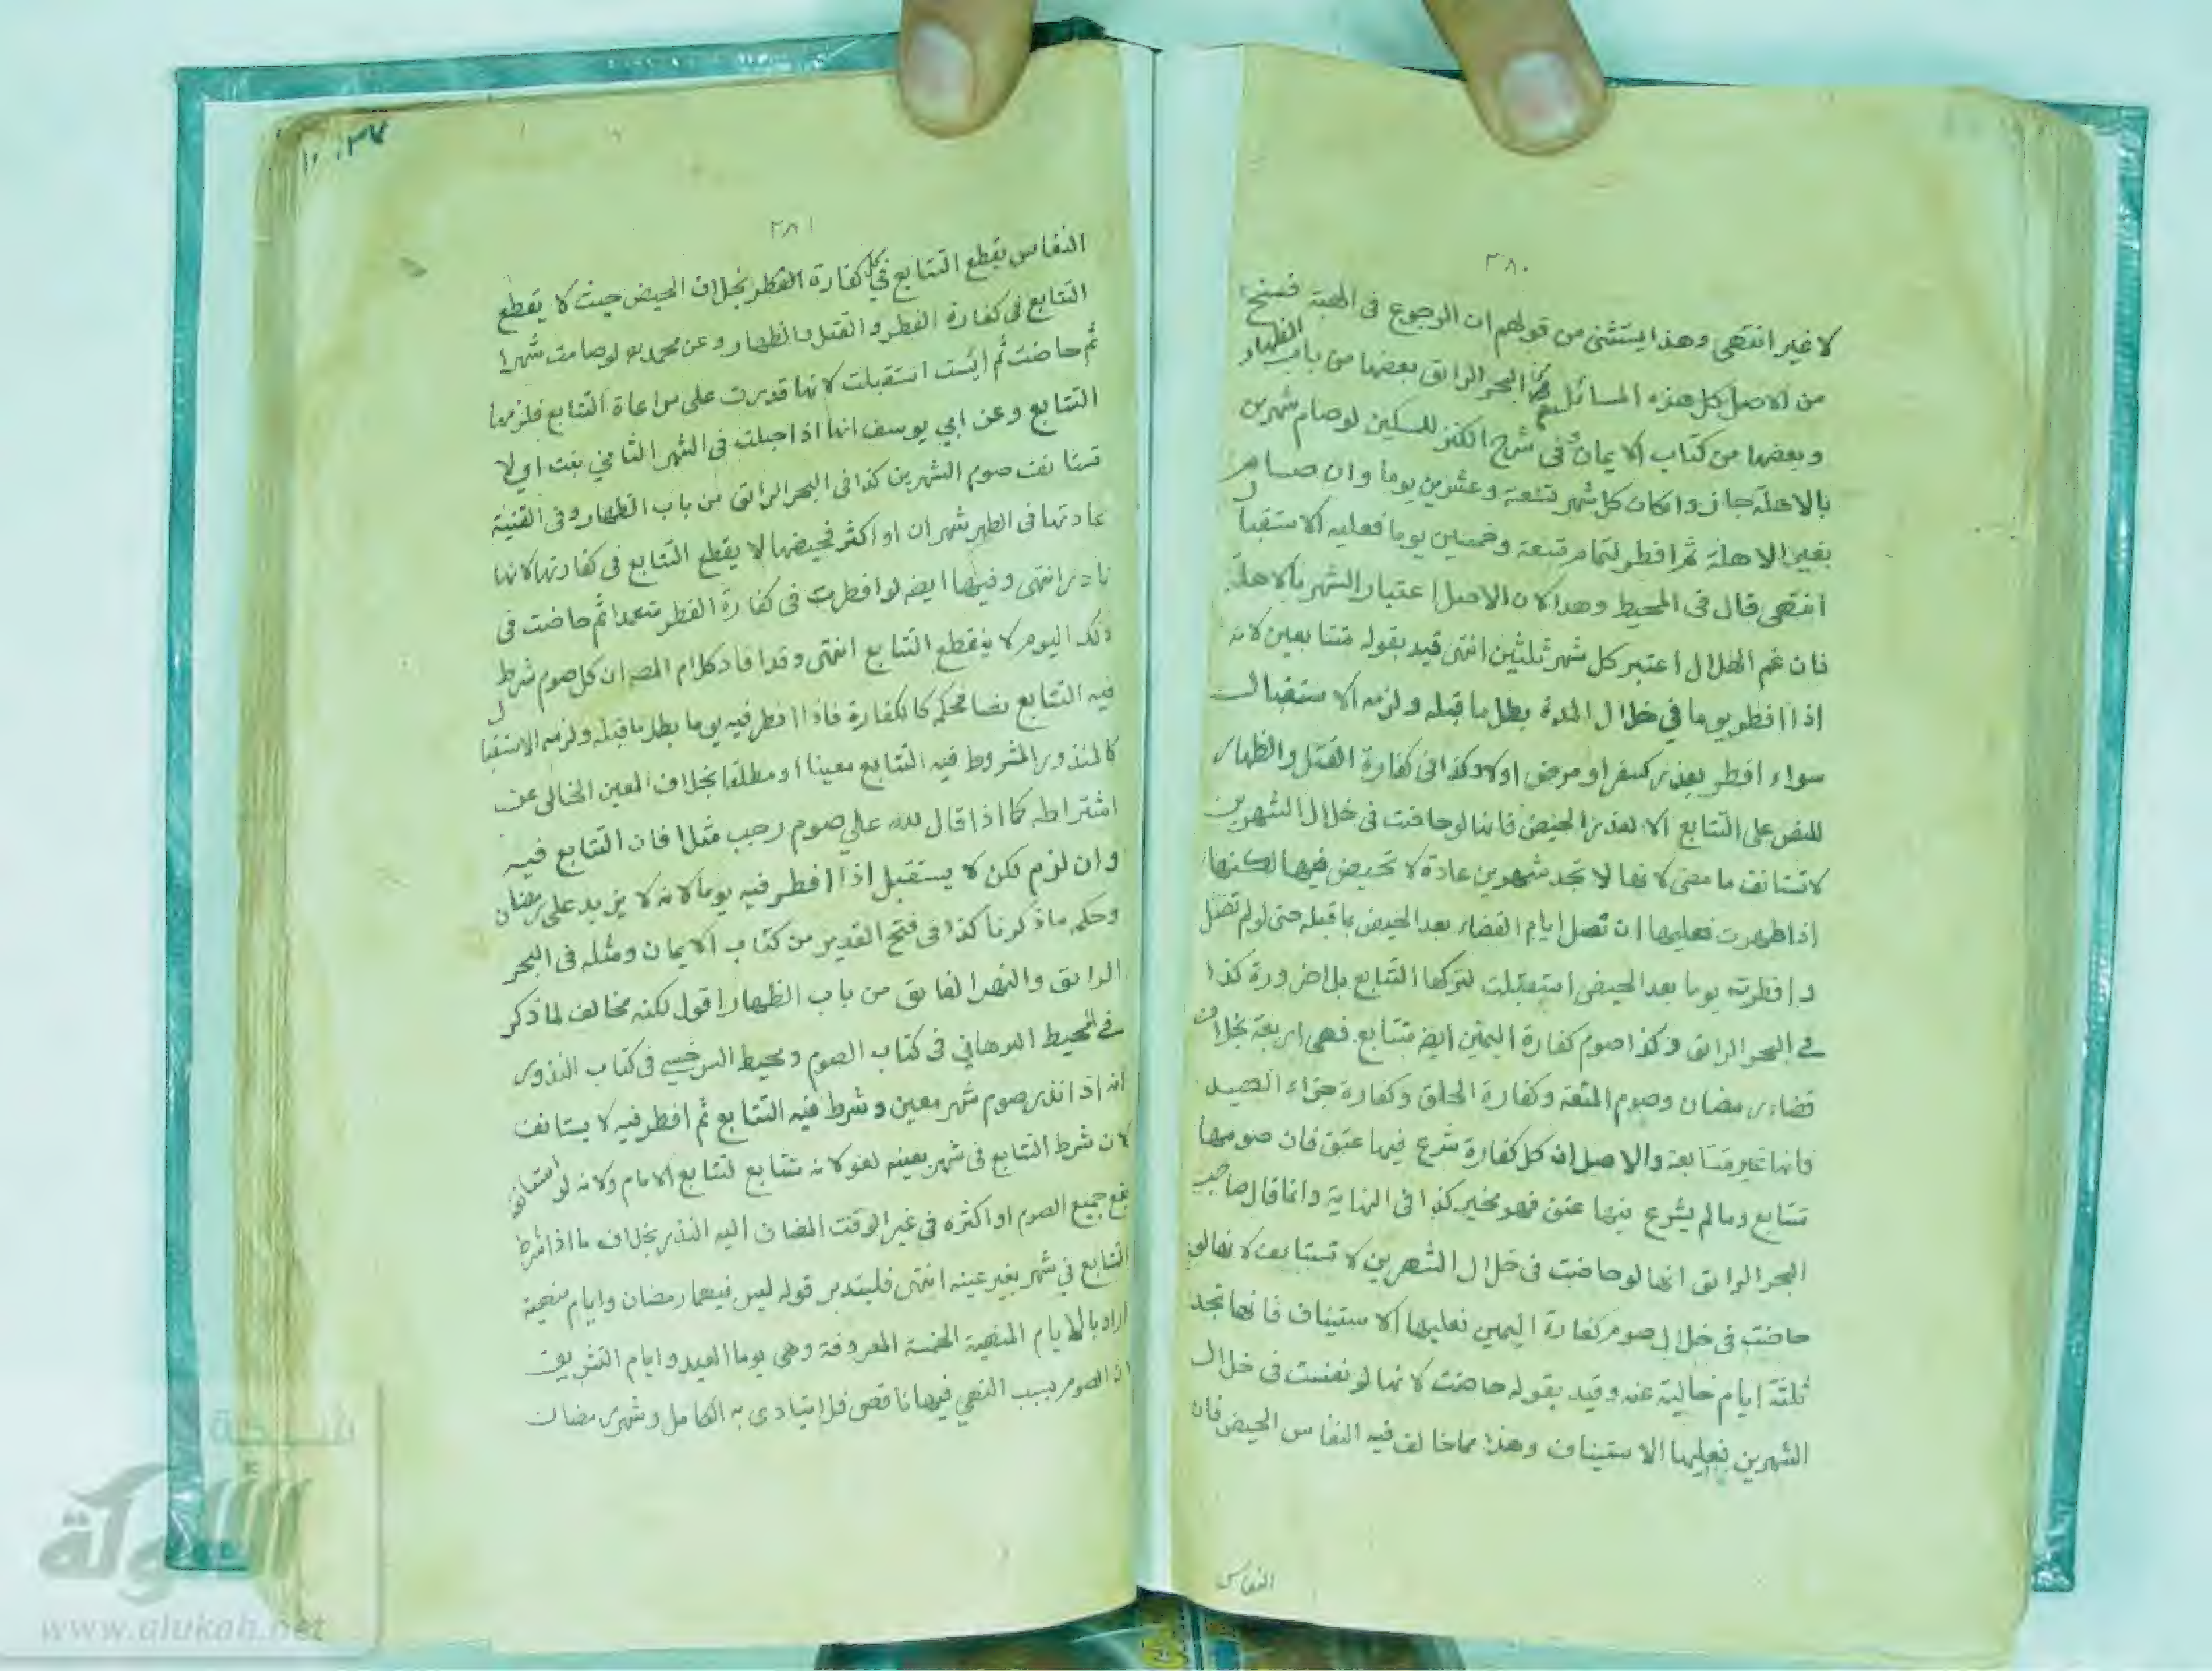 ٣٨٠
لا غير انتهى وهذا يستثنى من قولهم ان الرجوع فى الهبة فسخ
من الاصل كل هذه المسائل من البحر الرائق بعضها من باب الظهار
وبعضها من كتاب الايمان وفى شرح الكنز للمسكين لو صام شهرين
بالاهلة جاز وان كان كل شهر تسعة وعشرين يوما وان صام
بغير الاهلة ثم افطر لتمام تسعة وخمسين يوما فعليه الاستقبال
انتهى قال فى المحيط وهذا لان الاصل اعتبار الشهر بالاهلة
فان غم الهلال اعتبر كل شهر ثلثين انتهى قيد بقوله متتابعين لانه
اذا افطر يوما في خلال المدة بطل ما قبله ولزمه الاستقبال
سواء افطر بعذر كسفر او مرض اولا وكذا فى كفارة القتل والظهار
للنص على التتابع الا لعذر الحيض فانها لو حاضت فى خلال الشهرين
لا تستانف ما مضى لانها لا تجد شهرين عادة لا تحيض فيها لكنها
اذا طهرت فعليها ان تصل ايام القضاء بعد الحيض بما قبله حتى لو لم تصل
وافطرت يوما بعد الحيض استقبلت لتركها التتابع بلا ضرورة كذا
في البحر الرائق وكذا صوم كفارة اليمين ايضه متتابع فهى اربعة بخلاف
قضاء رمضان وصوم المتعة وكفارة الحلق وكفارة جزاء الصيد
فانها غير متتابعة والاصل ان كل كفارة شرع فيها عتق فان صومها
متتابع وما لم يشرع فيها عتق فهو مخير كذا فى النهاية وانما قال صاحب
البحر الرائق انها لو حاضت فى خلال الشهرين لا تستانف لانها لو
حاضت فى خلال صوم كفارة اليمين فعليها الاستيناف فانها تجد
ثلثة ايام خالية عنه وقيد بقوله حاضت لانها لو نفست فى خلال
الشهرين فعليها الاستيناف وهذا مما خالف فيه النفاس الحيض فان
النفاس
٣٨١
النفاس يقطع التتابع في كل كفارة الفطر بخلاف الحيض حيث لا يقطع
التتابع فى كفارة الفطر والقتل والظهار وعن محمد لو صامت شهرا
ثم حاضت ثم ائست استقبلت لانها قدرت على مراعاة التتابع فلزمها
التتابع وعن ابي يوسف انها اذا حبلت فى الشهر الثاني بنت اي لا
تستانف صوم الشهرين كذا فى البحر الرائق من باب الظهار وفى القنية
عادتها فى الطهر شهران او اكثر فحيضها لا يقطع التتابع فى كفارتها لانها
نادر انتهى وفيها ايضه لو افطرت فى كفارة الفطر متعمدا ثم حاضت فى
ذلك اليوم لا ينقطع التتابع انتهى وقد افاد كلام المصه ان كل صوم شرط
فيه التتابع نصا محكم كالكفارة فاذا افطر فيه يوما بطل ما قبله ولزمه الاستقبال
كالمنذور المشروط فيه التتابع معينا او مطلقا بخلاف المعين الخالى عن
اشتراطه كما اذا قال لله علي صوم رجب مثلا فان التتابع فيه
وان لزم لكن لا يستقبل اذا افطر فيه يوما لانه لا يزيد على رمضان
وحكمه ما ذكرنا كذا فى فتح القدير من كتاب الايمان ومثله فى البحر
الرائق والنهر الفايق من باب الظهار اقول لكنه مخالف لما ذكر
في المحيط البرهاني فى كتاب الصوم ومحيط السرخسي فى كتاب النذور
انه اذا نذر صوم شهر معين وشرط فيه التتابع ثم افطر فيه لا يستانف
لان شرط التتابع فى شهر بعينه لغو لانه متتابع لتتابع الايام ولانه لو استانف
يقع جميع الصوم او اكثره فى غير الوقت المضاف اليه النذر بخلاف ما اذا شرط
التتابع في شهر بغير عينه انتهى فليتدبر قوله ليس فيهما رمضان وايام منهية
اراد بالايام المنهية الخمسة المعروفة وهى يوما العيد وايام التشريق
لان الصوم بسبب النهي فيها ناقص فلا يتادى به الكامل وشهر رمضان
شبكة
الألوكة
www.alukah.net